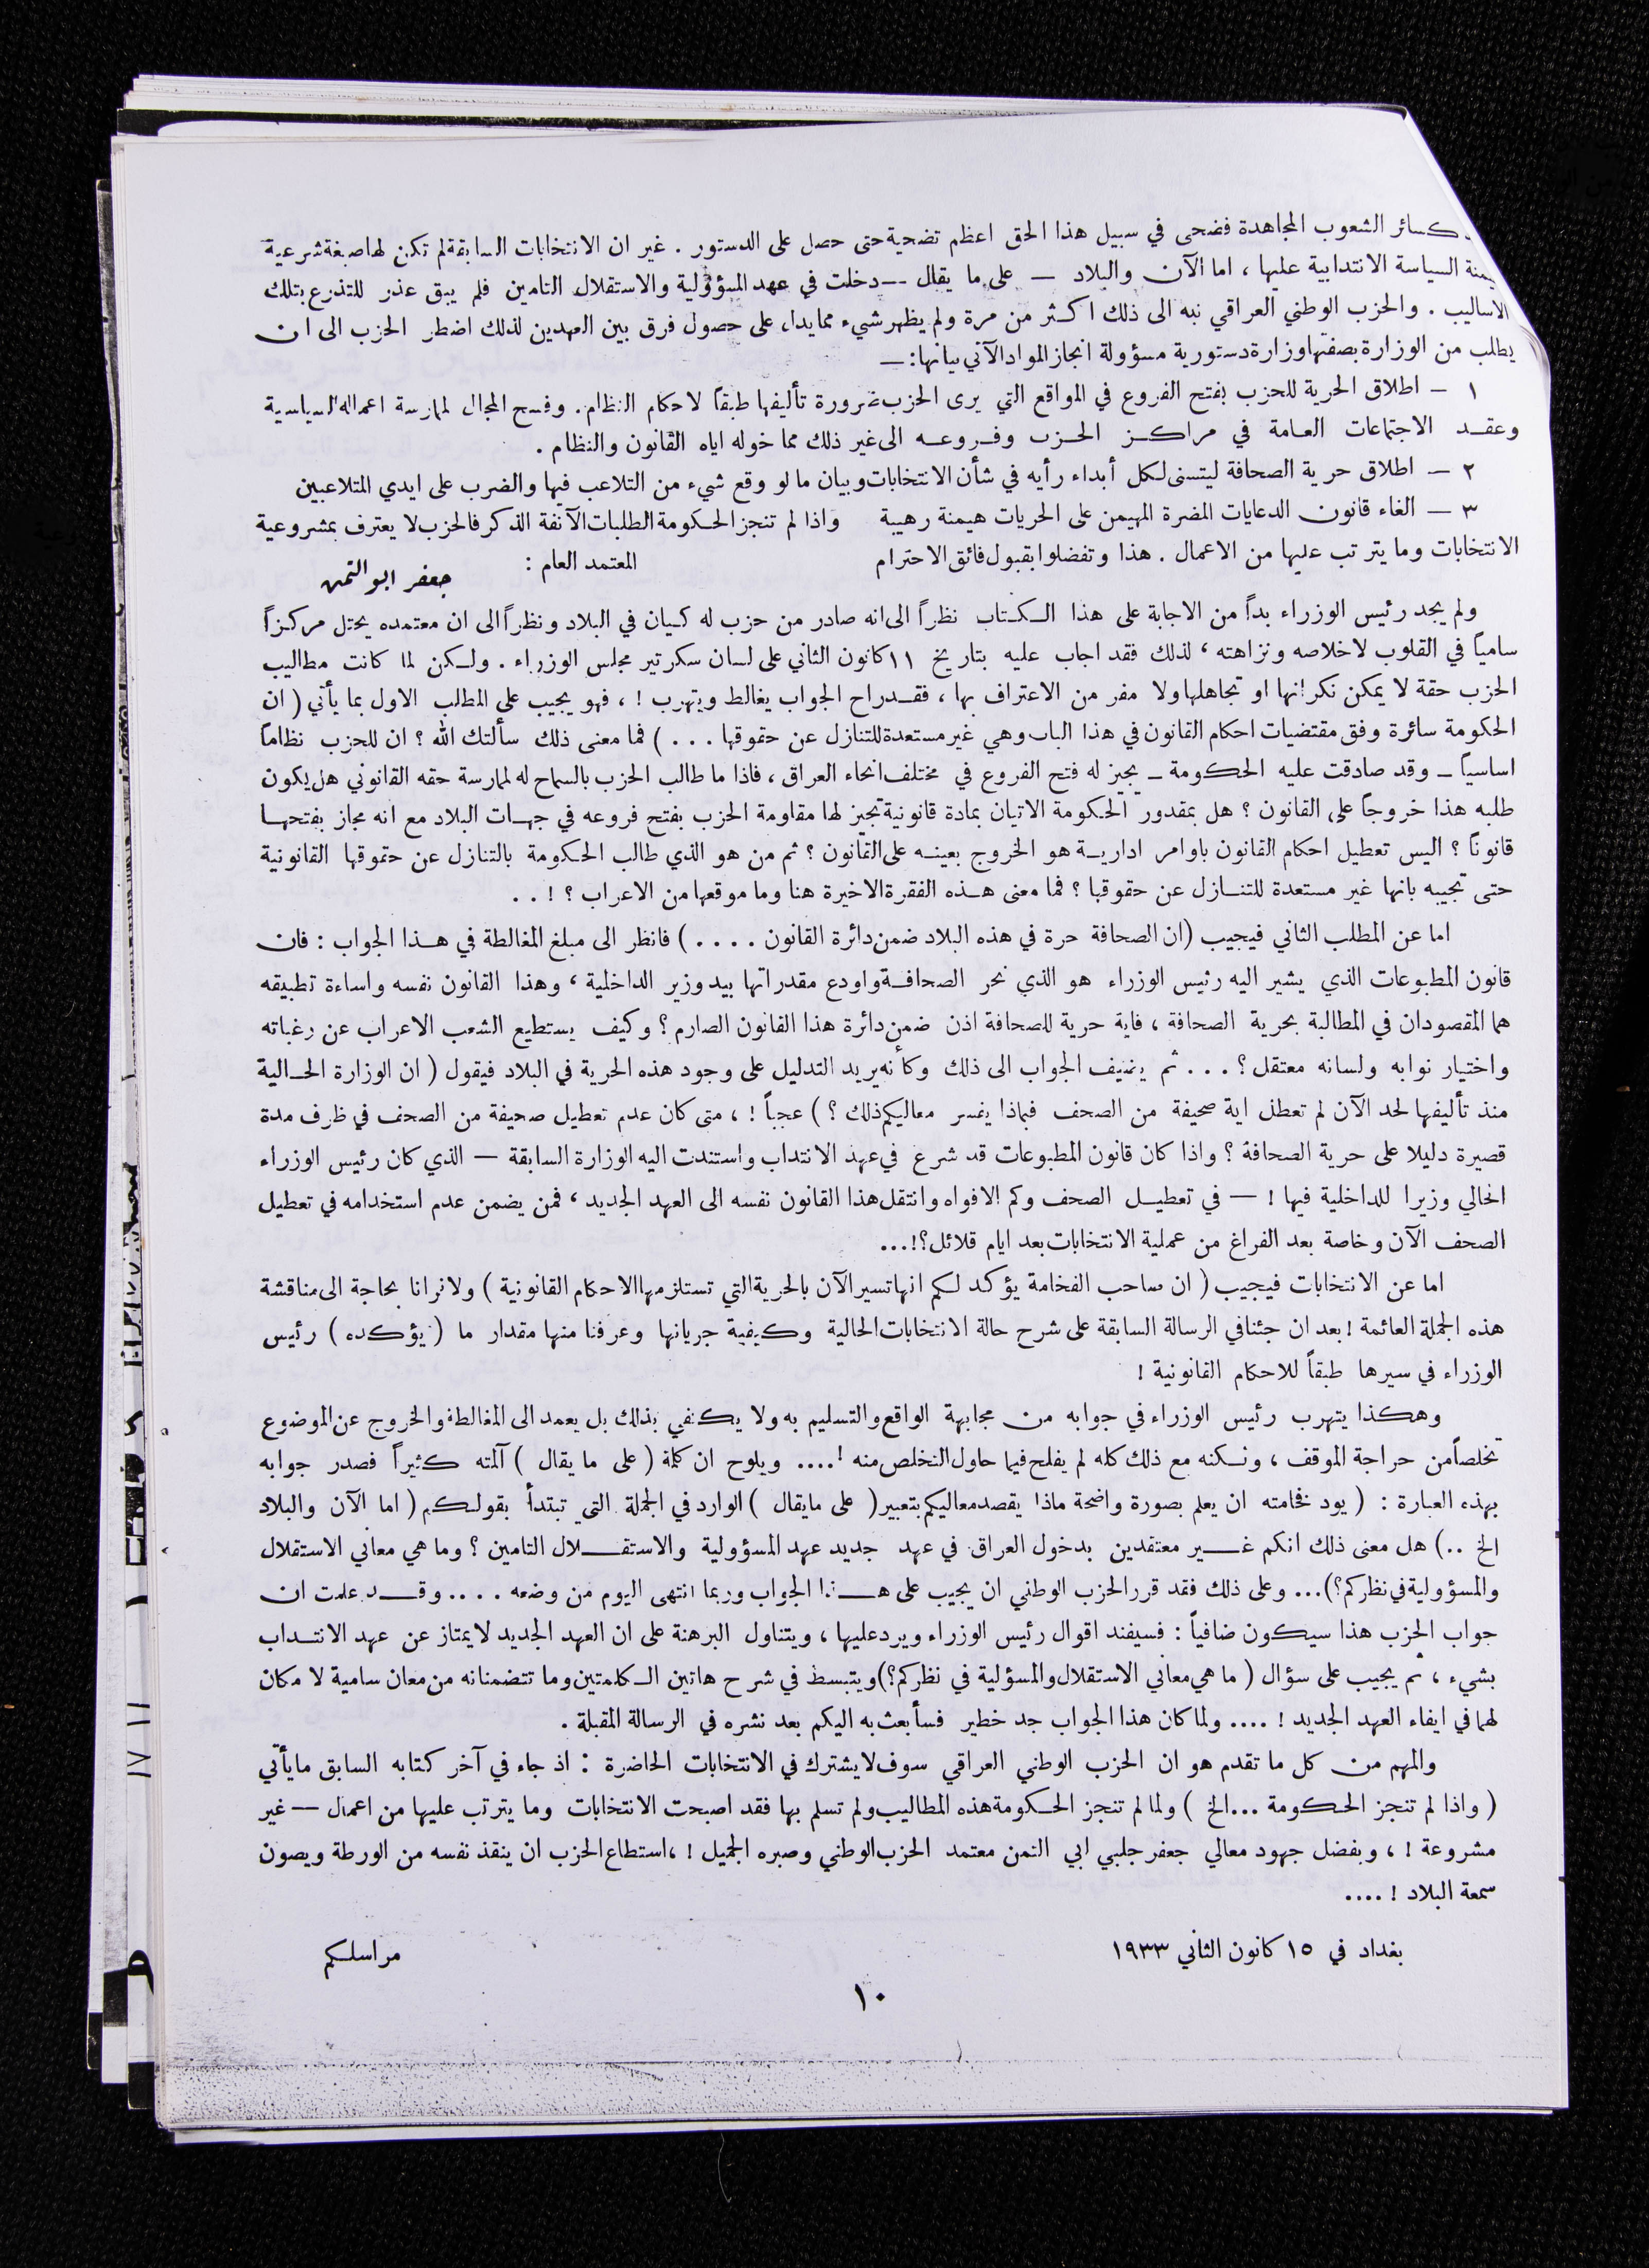 كسائر الشعوب المجاهدة فضحى في سبيل هذا الحق اعظم تضحية حتى حصل على الدستور . غير ان الانتخابات السابقة لم تكن لها صبغة شرعية
السياسة الانتدابية عليها ، اما الآن والبلاد — على ما يقال — دخلت في عهد المسؤولية والاستقلال التامين فلم يبق عذر للتذرع بتلك
الاساليب . والحزب الوطني العراقي نبه الى ذلك اكثر من مرة ولم يظهر شيء مما يدل على حصول فرق بين العهدين لذلك اضطر الحزب الى ان
يطلب من الوزارة بصفتها وزارة دستورية مسؤولة انجاز المواد الآتي بيانها : —
١ — اطلاق الحرية للحزب بفتح الفروع في المواقع التي يرى الحزب ضرورة تأليفها طبقاً لاحكام النظام . وفسح المجال لممارسة اعماله السياسية
وعقد الاجتماعات العامة في مراكز الحزب وفروعه الى غير ذلك مما خوله اياه القانون والنظام .
٢ — اطلاق حرية الصحافة ليتسنى لكل أبداء رأيه في شأن الانتخابات وبيان ما لو وقع شيء من التلاعب فيها والضرب على ايدي المتلاعبين
٣ — الغاء قانون الدعايات المضرة المهيمن على الحريات هيمنة رهيبة واذا لم تنجز الحكومة الطلبات الآنفة الذكر فالحزب لا يعترف بمشروعية
الانتخابات وما يترتب عليها من الاعمال . هذا وتفضلوا بقبول فائق الاحترام المعتمد العام :
جعفر ابو التمن
ولم يجد رئيس الوزراء بداً من الاجابة على هذا الكتاب نظراً الى انه صادر من حزب له كيان في البلاد ونظراً الى ان معتمده يحتل مركزاً
سامياً في القلوب لاخلاصه ونزاهته ، لذلك فقد اجاب عليه بتاريخ ١١ كانون الثاني على لسان سكرتير مجلس الوزراء . ولكن لما كانت مطاليب
الحزب حقة لا يمكن نكرانها او تجاهلها ولا مفر من الاعتراف بها ، فقد راح الجواب يغالط ويتهرب ! ، فهو يجيب على المطلب الاول بما يأتي ( ان
الحكومة سائرة وفق مقتضيات احكام القانون في هذا الباب وهي غير مستعدة للتنازل عن حقوقها . . . ) فما معنى ذلك سألتك الله ؟ ان للحزب نظاماً
اساسياً — وقد صادقت عليه الحكومة — يجيز له فتح الفروع في مختلف انحاء العراق ، فاذا ما طالب الحزب بالسماح له لممارسة حقه القانوني هل يكون
طلبه هذا خروجاً على القانون ؟ هل بمقدور الحكومة الاتيان بمادة قانونية تجيز لها مقاومة الحزب بفتح فروعه في جهات البلاد مع انه مجاز بفتحها
قانوناً ؟ اليس تعطيل احكام القانون باوامر ادارية هو الخروج بعينه على القانون ؟ ثم من هو الذي طالب الحكومة بالتنازل عن حقوقها القانونية
حتى تجيبه بانها غير مستعدة للتنازل عن حقوقها ؟ فما معنى هذه الفقرة الاخيرة هنا وما موقعها من الاعراب ؟ ! . .
اما عن المطلب الثاني فيجيب (ان الصحافة حرة في هذه البلاد ضمن دائرة القانون . . . . ) فانظر الى مبلغ المغالطة في هذا الجواب : فان
قانون المطبوعات الذي يشير اليه رئيس الوزراء هو الذي نحر الصحافة واودع مقدراتها بيد وزير الداخلية ، وهذا القانون نفسه واساءة تطبيقه
هما المقصودان في المطالبة بحرية الصحافة ، فاية حرية للصحافة اذن ضمن دائرة هذا القانون الصارم ؟ وكيف يستطيع الشعب الاعراب عن رغباته
واختيار نوابه ولسانه معتقل ؟ . . . ثم يضيف الجواب الى ذلك وكأنه يريد التدليل على وجود هذه الحرية في البلاد فيقول ( ان الوزارة الحالية
منذ تأليفها لحد الآن لم تعطل اية صحيفة من الصحف فبماذا يفسر معاليكم ذلك ؟ ) عجباً ! ، متى كان عدم تعطيل صحيفة من الصحف في ظرف مدة
قصيرة دليلا على حرية الصحافة ؟ واذا كان قانون المطبوعات قد شرع في عهد الانتداب واستندت اليه الوزارة السابقة — الذي كان رئيس الوزراء
الحالي وزيرا للداخلية فيها ! — في تعطيل الصحف وكم الافواه وانتقل هذا القانون نفسه الى العهد الجديد ، فمن يضمن عدم استخدامه في تعطيل
الصحف الآن وخاصة بعد الفراغ من عملية الانتخابات بعد ايام قلائل ؟!...
اما عن الانتخابات فيجيب ( ان صاحب الفخامة يؤكد لكم انها تسير الآن بالحرية التي تستلزمها الاحكام القانونية ) ولا نرانا بحاجة الى مناقشة
هذه الجملة العائمة ! بعد ان جئنا في الرسالة السابقة على شرح حالة الانتخابات الحالية وكيفية جريانها وعرفنا منها مقدار ما ( يؤكده ) رئيس
الوزراء في سيرها طبقاً للاحكام القانونية !
وهكذا يتهرب رئيس الوزراء في جوابه من مجابهة الواقع والتسليم به ولا يكتفي بذلك بل يعمد الى المغالطة والخروج عن الموضوع
تخلصاً من حراجة الموقف ، ولكنه مع ذلك كله لم يفلح فيما حاول التخلص منه !.... ويلوح ان كلمة ( على ما يقال ) آلمته كثيراً فصدر جوابه
بهذه العبارة : ( يود فخامته ان يعلم بصورة واضحة ماذا يقصد معاليكم بتعبير ( على مايقال ) الوارد في الجملة التي تبتدأ بقولكم ( اما الآن والبلاد
الخ ..) هل معنى ذلك انكم غير معتقدين بدخول العراق في عهد جديد عهد المسؤولية والاستقلال التامين ؟ وما هي معاني الاستقلال
والمسؤولية في نظركم؟)... وعلى ذلك فقد قرر الحزب الوطني ان يجيب على هذا الجواب وربما انتهى اليوم من وضعه . . . . وقد علمت ان
جواب الحزب هذا سيكون ضافياً : فسيفند اقوال رئيس الوزراء ويرد عليها ، ويتناول البرهنة على ان العهد الجديد لا يمتاز عن عهد الانتداب
بشيء ، ثم يجيب على سؤال ( ما هي معاني الاستقلال والمسؤلية في نظركم؟) ويتبسط في شرح هاتين الكلمتين وما تتضمنانه من معان سامية لا مكان
لهما في ايفاء العهد الجديد ! .... ولما كان هذا الجواب جد خطير فسأبعث به اليكم بعد نشره في الرسالة المقبلة .
والمهم من كل ما تقدم هو ان الحزب الوطني العراقي سوف لا يشترك في الانتخابات الحاضرة : اذ جاء في آخر كتابه السابق مايأتي
( واذا لم تنجز الحكومة ...الخ ) ولما لم تنجز الحكومة هذه المطاليب ولم تسلم بها فقد اصبحت الانتخابات وما يترتب عليها من اعمال — غير
مشروعة ! ، وبفضل جهود معالي جعفر جلبي ابي التمن معتمد الحزب الوطني وصبره الجميل ! ، استطاع الحزب ان ينقذ نفسه من الورطة ويصون
سمعة البلاد ! ....
بغداد في ١٥ كانون الثاني ١٩٣٣ مراسلكم
١٠